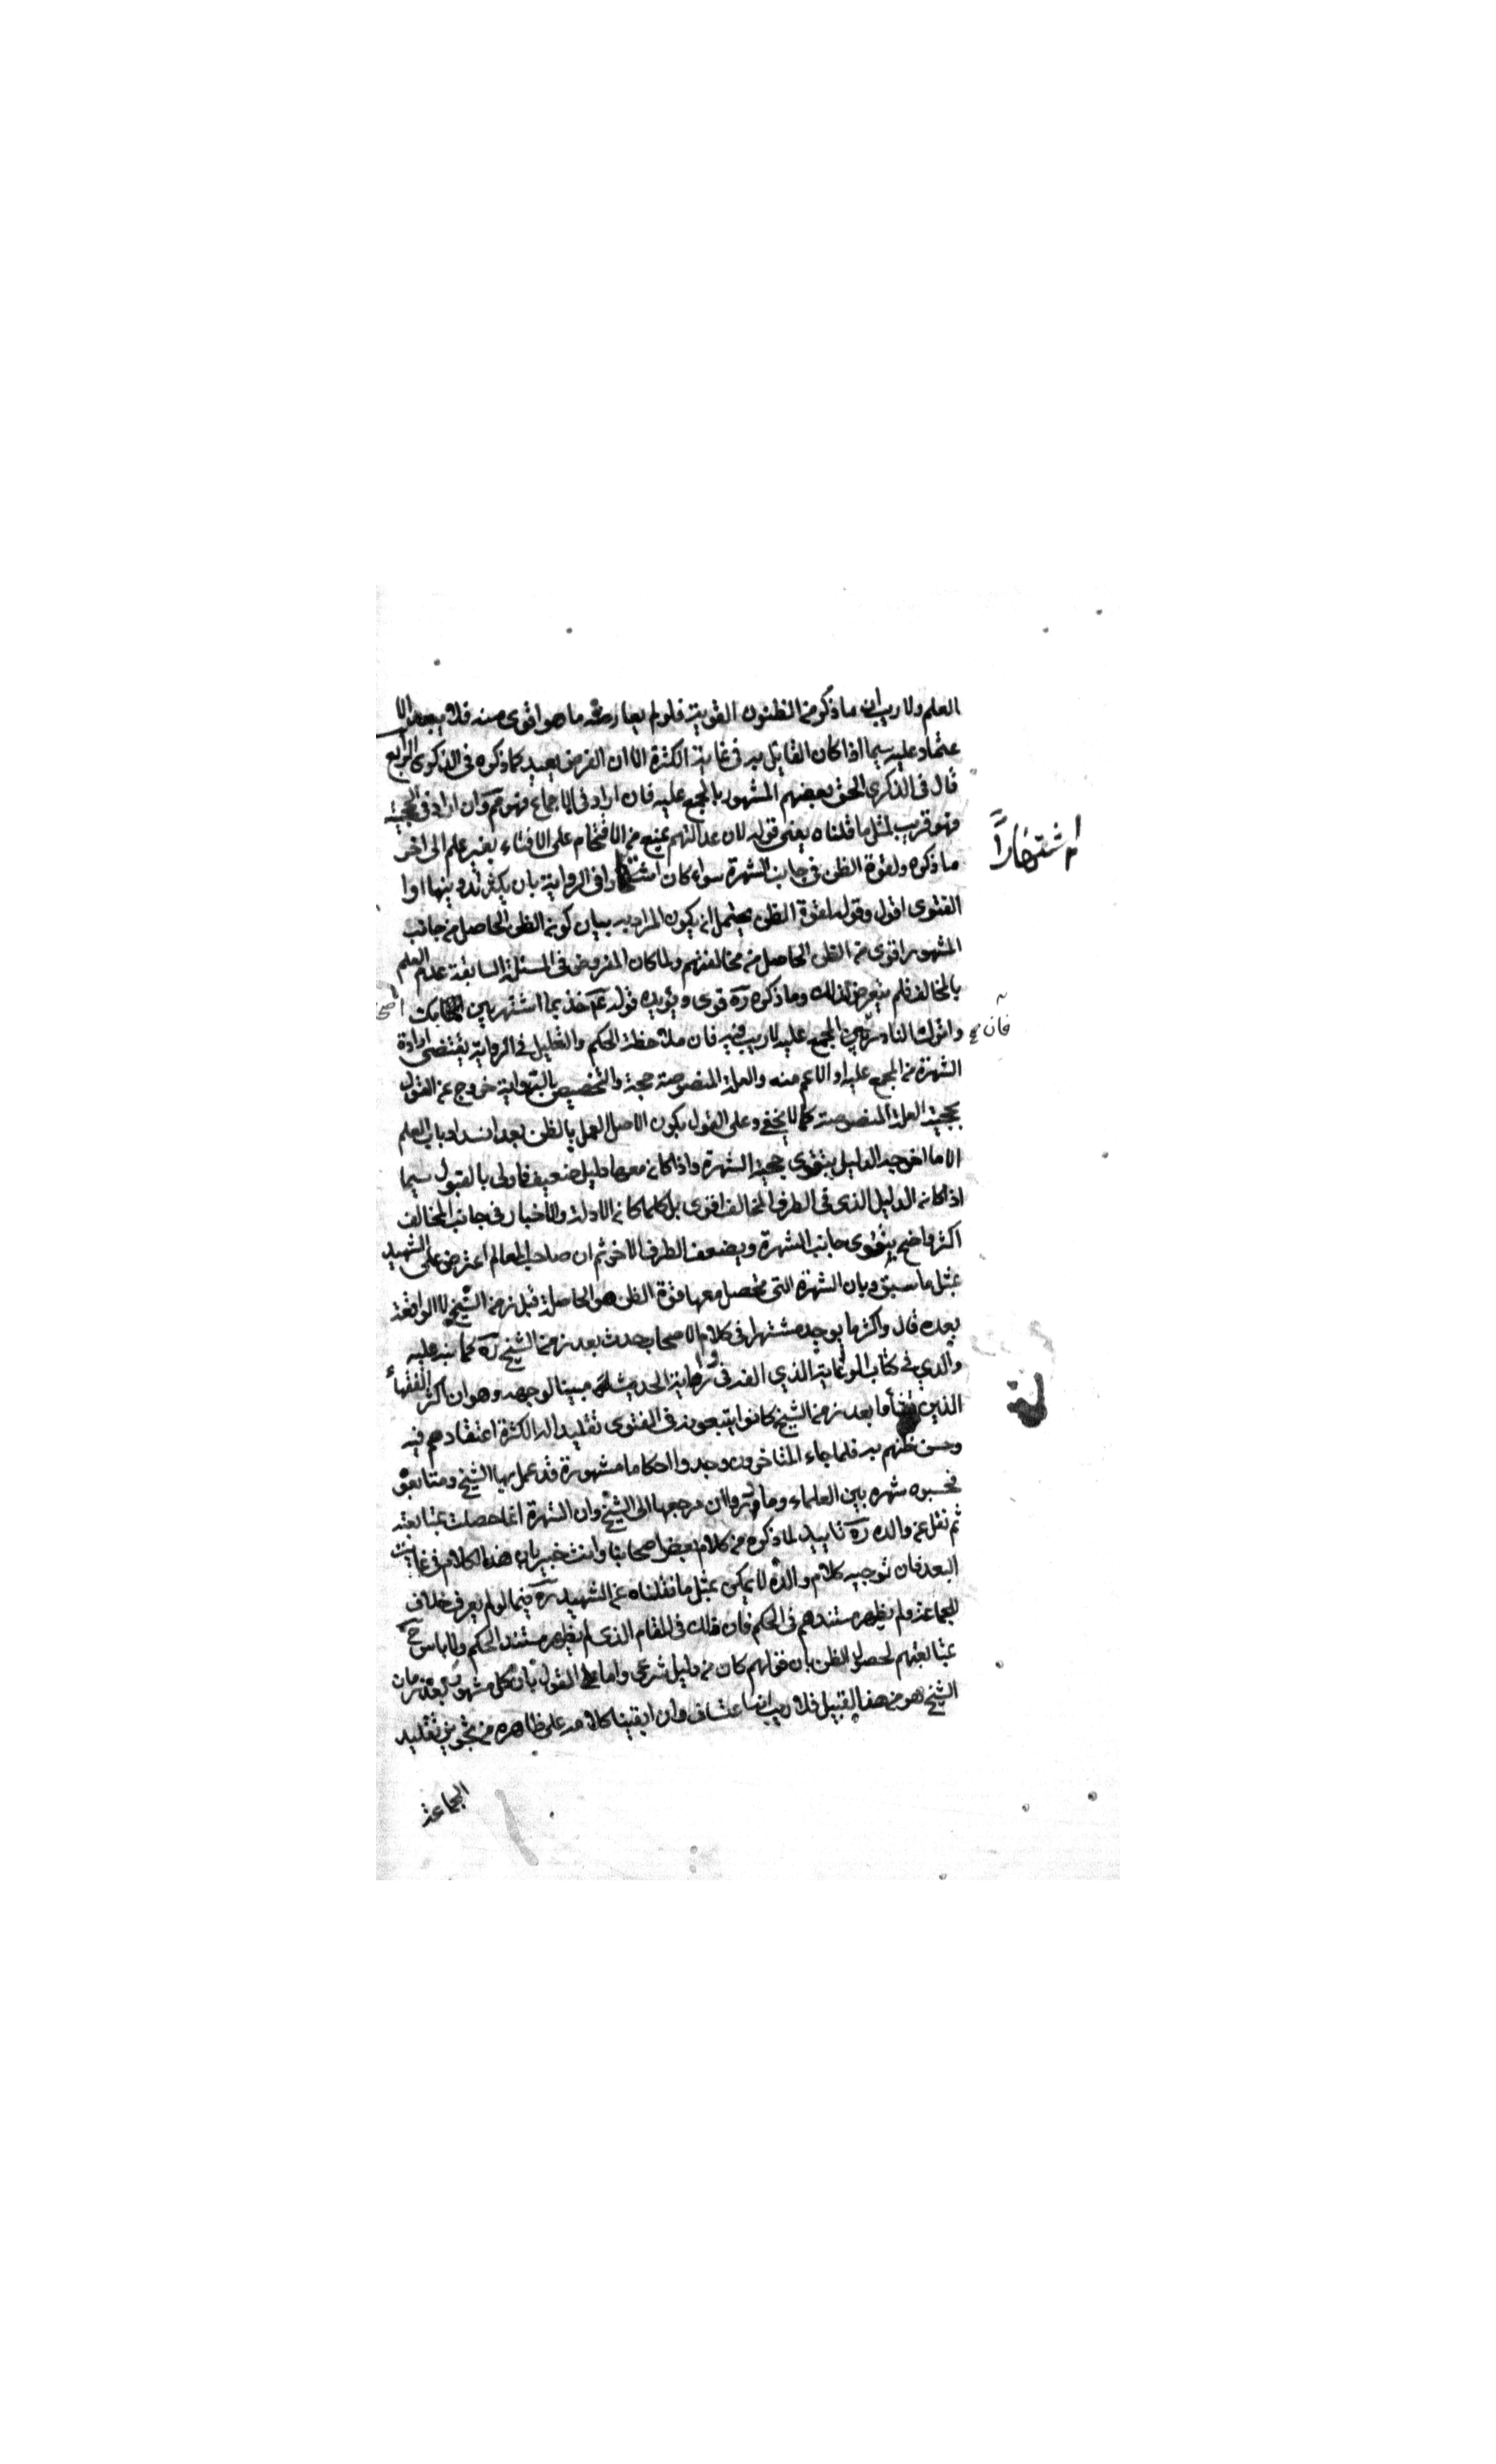 العلم ولا ريب ان ما ذكر من الظنون القوية فلو لم يعارضه ما هو اقوى منه فلا يبعد الا
عتماد عليه سيما اذا كان القايل به فى غاية الكثرة الا ان الفرض بعيد كما ذكره فى الذكرى الرابع
قال فى الذكرى الحق بعضهم المشهور بالمجمع عليه فان اراد فى الاجماع فهو مم وان اراد فى الحجية
فهو قريب لمثل ما قلناه يعنى قوله لان عدالتهم تمنع من الاقتحام على الافتاء بغير علم الى اخر
ما ذكره ولقوة الظن فى جانب الشهرة سواء كان اشتهارا فى الرواية بان يكثر تدوينها او ا
اشتهارا
الفتوى اقول وقوله لقوة الظن يحتمل ان يكون المراد به بيان كون الظن الحاصل من جانب
المشهور اقوى من الظن الحاصل من مخالفتهم ولما كان المفروض فى المسئلة السابقة عدم العلم
بالمخالف فلم يتعرض لذلك وما ذكره ره قوى ويؤيده قوله عم خذ بما اشتهر بين اصحابك
واترك الشاذ النادر فان المجمع عليه لا ريب فيه فان ملاحظة الحكم والتعليل فى الرواية يقتضى ارادة
فان
الشهرة من المجمع عليه او الاعم منه والعلة المنصوصة حجة والتخصيص بالرواية خروج عن القول
بحجية العلة المنصوصة كما لا يخفى وعلى القول بكون الاصل العمل بالظن بعد انسداد باب العلم
الا ما اخرجه الدليل يتقوى حجية الشهرة واذا كان معها دليل ضعيف فاولى بالقبول سيما
اذا كان الدليل الذى فى الطرف المخالف اقوى بل كلما كان الادلة والاخبار فى جانب المخالف
اكثر واضح يتقوى جانب الشهرة ويضعف الطرف الاخر ثم ان صاحب المعالم اعترض على الشهيد
بمثل ما سبق وبان الشهرة التى تحصل معها قوة الظن هو الحاصلة قبل زمن الشيخ لا الواقعة
بعده قال واكثر ما يوجد مشتهرا فى كلام الاصحاب حدث بعد زمن الشيخ ره كما نبه عليه
والدي في كتاب الرعاية الذي الفه فى دراية الحديث مبينا لوجهه وهو ان اكثر الفقهاء
الذين نشأوا بعد زمن الشيخ كانوا يتبعونه فى الفتوى تقليدا له لكثرة اعتقادهم فيه
وحسن ظنهم به فلما جاء المتاخرون وجدوا احكاما مشهورة قد عمل بها الشيخ ومتابعوه
فحسبوه شهره بين العلماء وما دروا ان مرجعها الى الشيخ وان الشهرة انما حصلت بمتابعته
ثم نقل عن والده ره تاييد لما ذكره من كلام بعض اصحابنا وانت خبير بان هذا الكلام فى غاية
البعد فان توجيه كلام والده لا يمكن بمثل ما نقلناه عن الشهيد ره فيما لو لم يعرف خلاف
للجماعة ولم يظهر مستندهم فى الحكم فان ذلك فى المقام الذى لم يظهر مستند الحكم ولا باس ح
بمتابعتهم لحصول الظن بان قولهم كان من دليل شرعى واما القول بان كل مشهور بعد زمان
الشيخ هو من هذا القبيل فلا ريب انه اعتساف وان ابقينا كلامه على ظاهره من تجويز تقليد
الجماعة